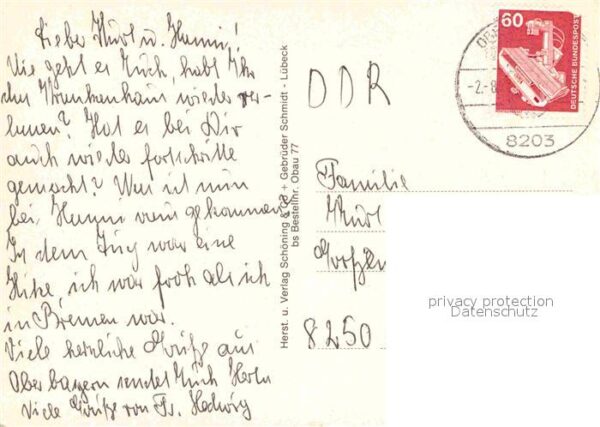 Lieber Kurt u. Hanni!
Wie geht es Euch, habt Ihr
das Krankenhaus wieder ver-
lassen? Hat es bei Dir
auch wieder fortschritte
gemacht? Was ist nun
bei Hanni rausgekommen?
In dem Zug war eine
Hitze, ich war froh als ich
in Bremen war.
Viele herzliche Grüße aus
Oberbayern sendet Euch
Viele Grüße von Fr. Hedwig
Herst. u. Verlag Schöning & Co + Gebrüder Schmidt - Lübeck
bs Bestellnr. Obau 77
DDR
60
DEUTSCHE BUNDESPOST
-2.-8
8203
Familie
Kurt
8250
privacy protection
Datenschutz